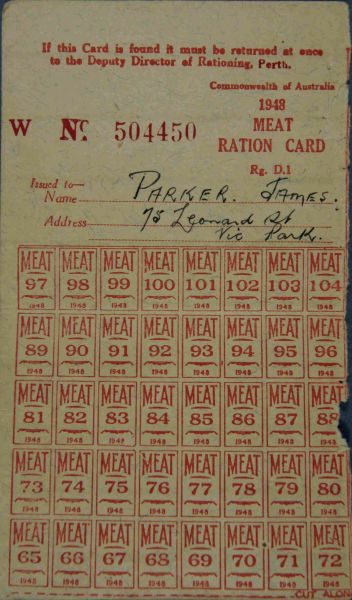 If this Card is found it must be returned at once
to the Deputy Director of Rationing, Perth.
Commonwealth of Australia
1948
W Nº 504450
MEAT
RATION CARD
Rg. D.1
Issued to—
Name PARKER. JAMES.
Address 75 Leonard St
Vic Park.
MEAT MEAT MEAT MEAT MEAT MEAT MEAT MEAT
97 98 99 100 101 102 103 104
1948 1948 1948 1948 1948 1948 1948 1948
MEAT MEAT MEAT MEAT MEAT MEAT MEAT MEAT
89 90 91 92 93 94 95 96
1948 1948 1948 1948 1948 1948 1948 1948
MEAT MEAT MEAT MEAT MEAT MEAT MEAT MEAT
81 82 83 84 85 86 87 88
1948 1948 1948 1948 1948 1948 1948 1948
MEAT MEAT MEAT MEAT MEAT MEAT MEAT MEAT
73 74 75 76 77 78 79 80
1948 1948 1948 1948 1948 1948 1948 1948
MEAT MEAT MEAT MEAT MEAT MEAT MEAT MEAT
65 66 67 68 69 70 71 72
1948 1948 1948 1948 1948 1948 1948 1948
CUT ALON